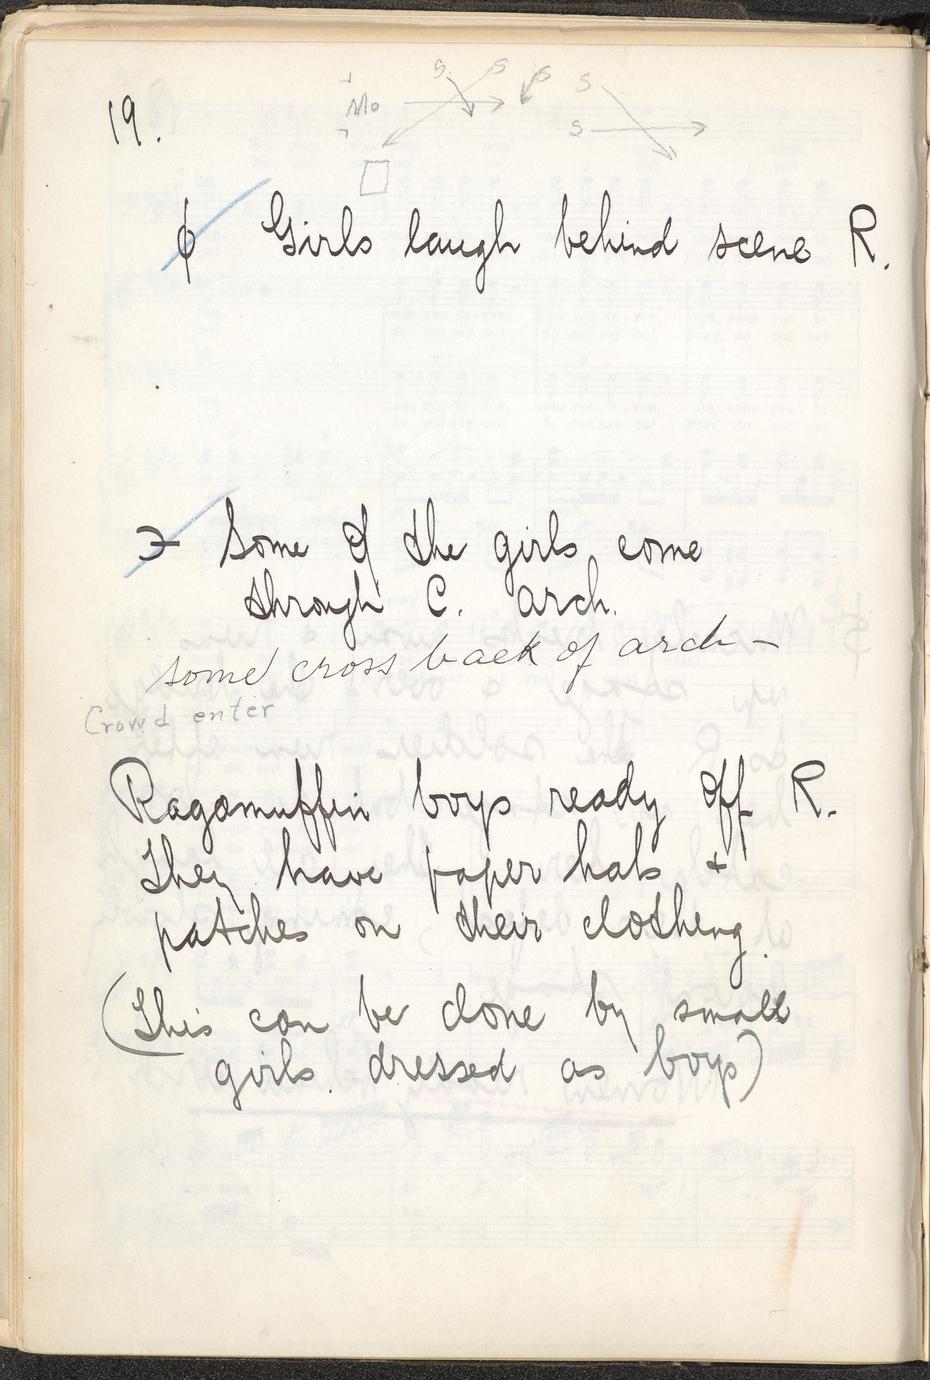 19.
S S S S
Mo
S
Girls laugh behind scene R.
Some of the girls come
through C. arch.
some cross back of arch –
Crowd enter
Ragamuffin boys ready off R.
They have paper hats +
patches on their clothing.
(This can be done by small
girls dressed as boys)